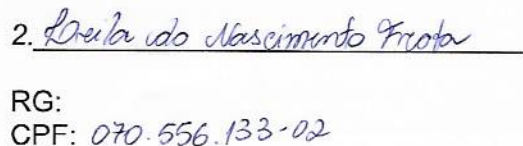 2. do Nascimento Frota
RG:
CPF: 070.556.133-02